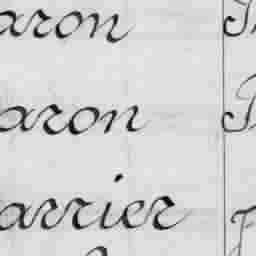 aron
aron
arrier